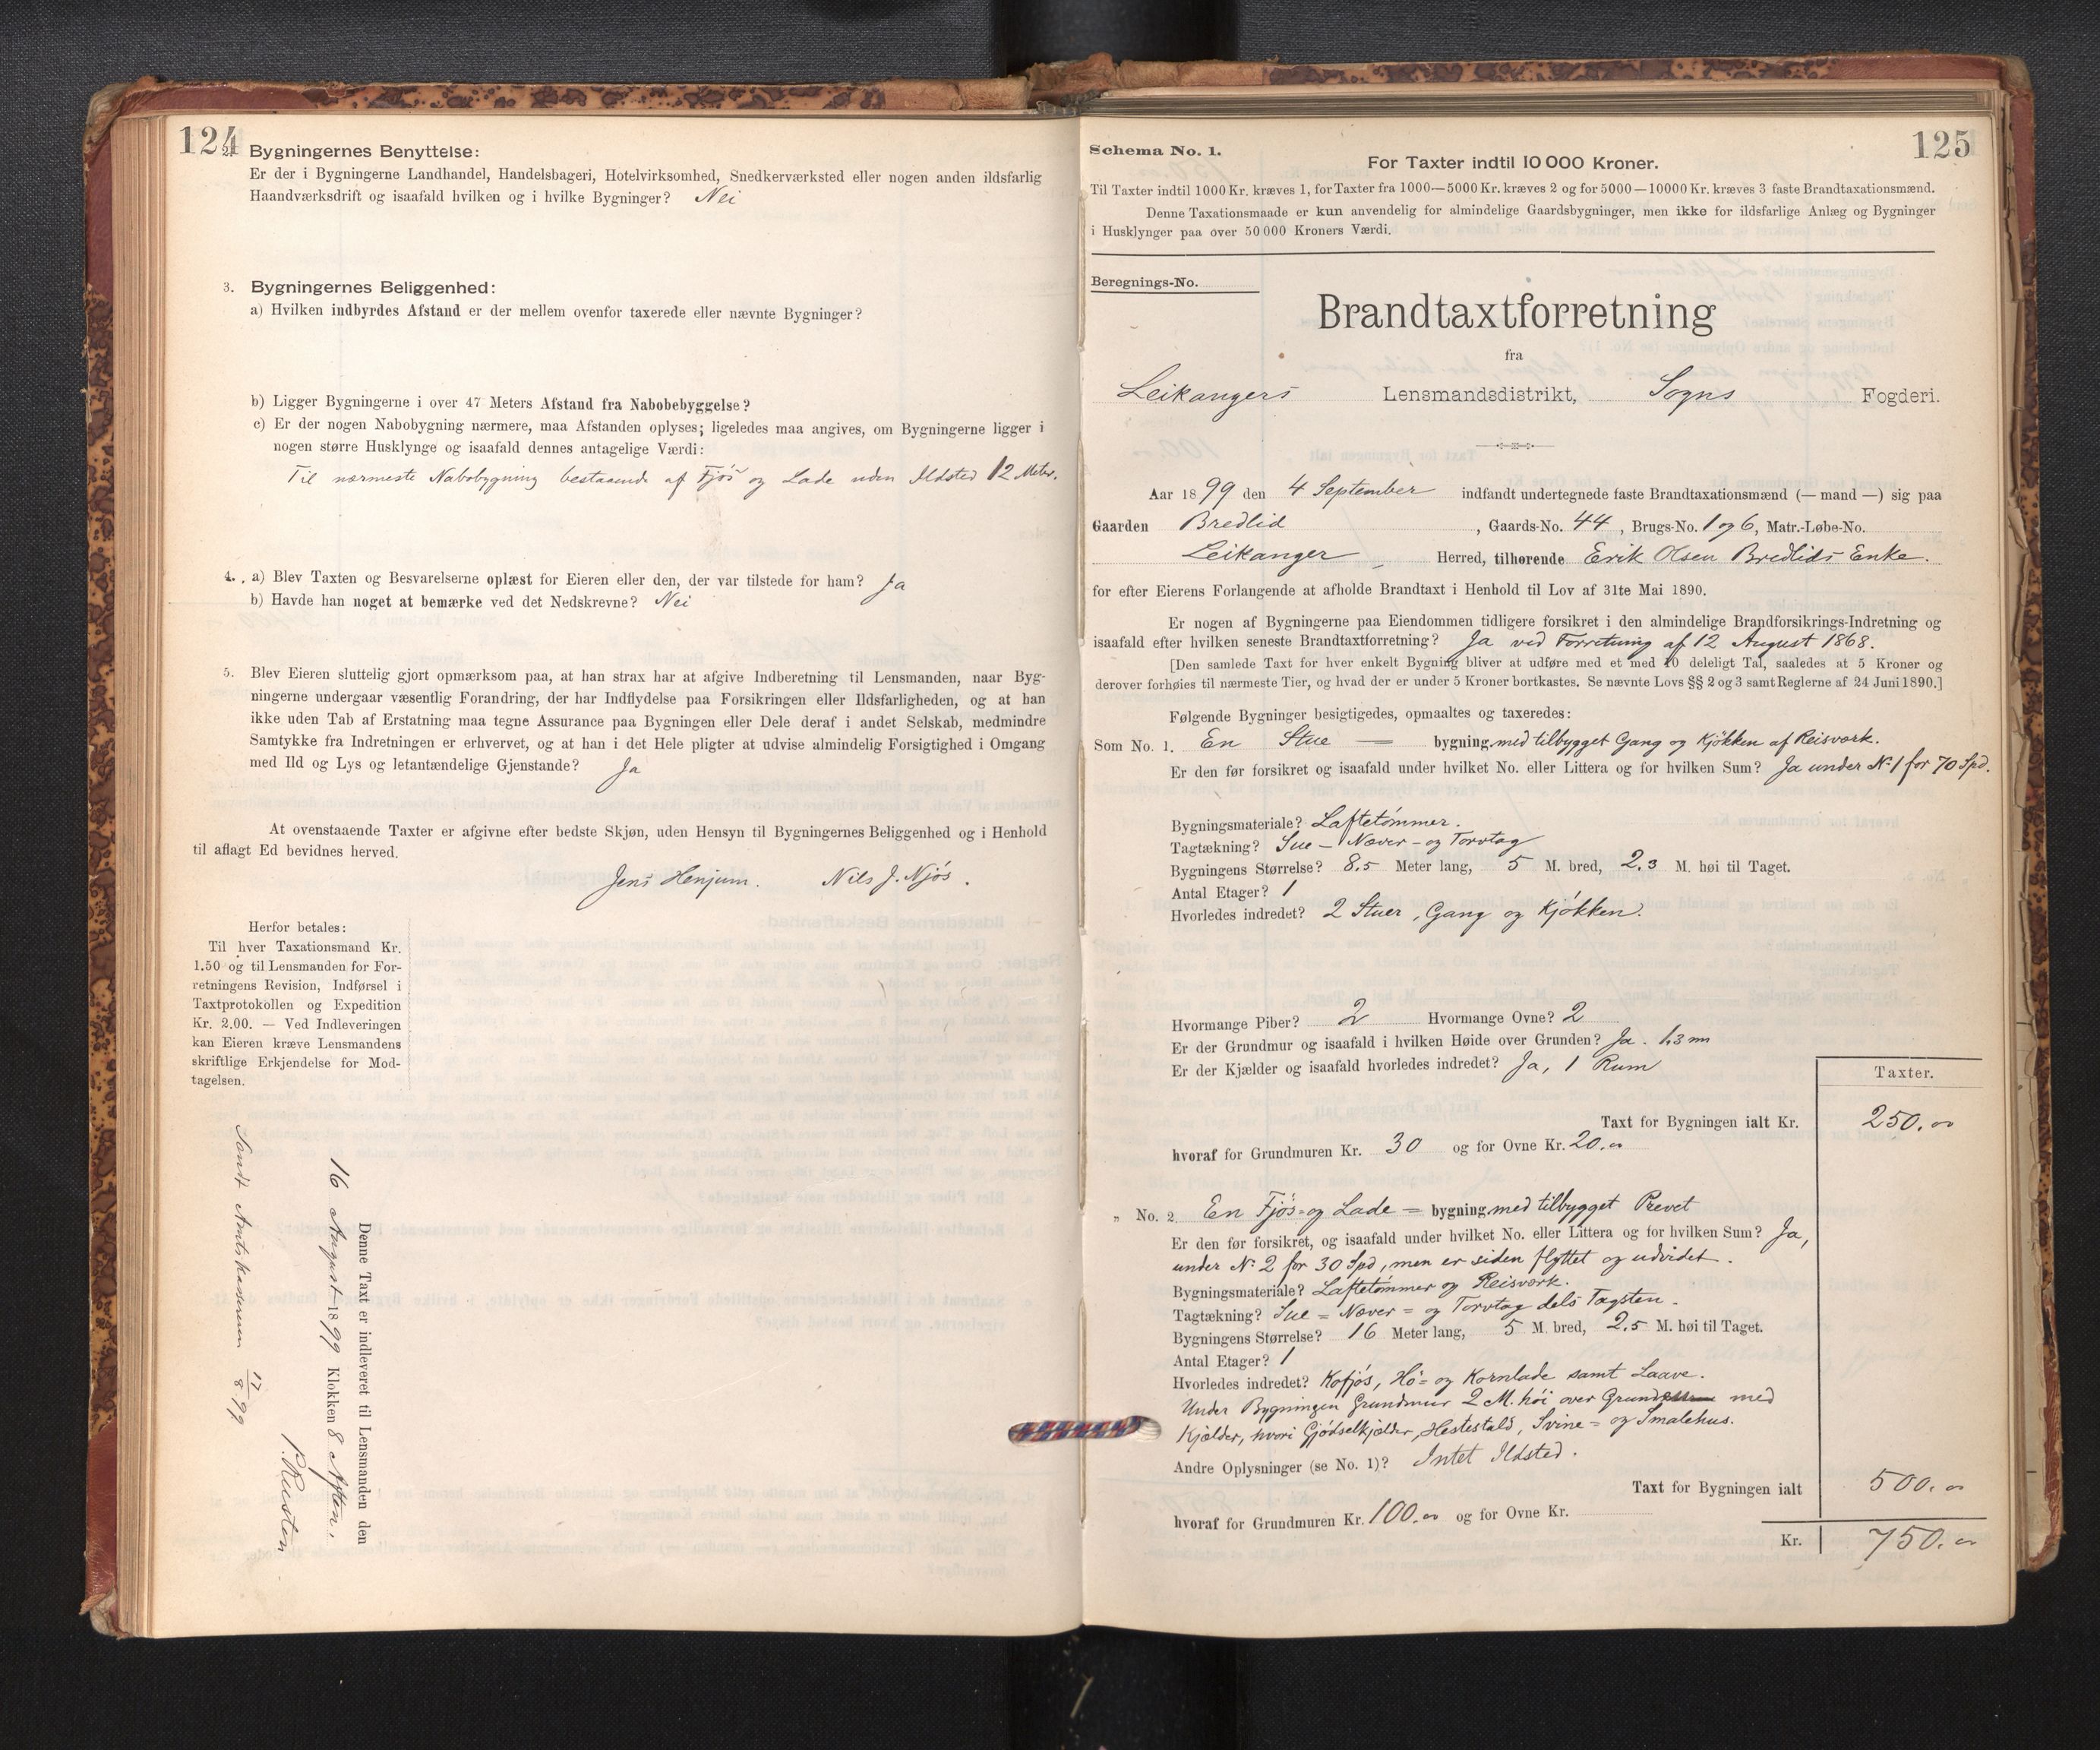 124
2. Bygningernes Benyttelse:
Er der i Bygningerne Landhandel, Handelsbageri, Hotelvirksomhed, Snedkerværksted eller nogen anden ildsfarlig
Haandværksdrift og isaafald hvilken og i hvilke Bygninger? Nei
3. Bygningernes Beliggenhed:
a) Hvilken indbyrdes Afstand er der mellem ovenfor taxerede eller nævnte Bygninger?
b) Ligger Bygningerne i over 47 Meters Afstand fra Nabobebyggelse?
c) Er der nogen Nabobygning nærmere, maa Afstanden oplyses; ligeledes maa angives, om Bygningerne ligger i
nogen større Husklynge og isaafald dennes antagelige Værdi:
Til nærmeste Nabobygning bestaaende af Fjøs og Lade uden Ildsted 12 Meter.
4. a) Blev Taxten og Besvarelserne oplæst for Eieren eller den, der var tilstede for ham? Ja
b) Havde han noget at bemærke ved det Nedskrevne? Nei
5. Blev Eieren sluttelig gjort opmærksom paa, at han strax har at afgive Indberetning til Lensmanden, naar Byg-
ningerne undergaar væsentlig Forandring, der har Indflydelse paa Forsikringen eller Ildsfarligheden, og at han
ikke uden Tab af Erstatning maa tegne Assurance paa Bygningen eller Dele deraf i andet Selskab, medmindre
Samtykke fra Indretningen er erhvervet, og at han i det Hele pligter at udvise almindelig Forsigtighed i Omgang
med Ild og Lys og letantændelige Gjenstande? Ja
At ovenstaaende Taxter er afgivne efter bedste Skjøn, uden Hensyn til Bygningernes Beliggenhed og i Henhold
til aflagt Ed bevidnes herved.
Jens Henjum. Nils J. Njøs.
Herfor betales:
Til hver Taxationsmand Kr.
1.50 og til Lensmanden for For-
retningens Revision, Indførsel i
Taxtprotokollen og Expedition
Kr. 2.00. — Ved Indleveringen
kan Eieren kræve Lensmandens
skriftlige Erkjendelse for Mod-
tagelsen.
Denne Taxt er indleveret til Lensmanden den
16 August 1899 Klokken 8 Aften.
P. Reisten
Sendt Amtskassereren 17/8 99
125
Schema No. 1.
For Taxter indtil 10 000 Kroner.
Til Taxter indtil 1000 Kr. kræves 1, for Taxter fra 1000—5000 Kr. kræves 2 og for 5000—10000 Kr. kræves 3 faste Brandtaxationsmænd.
Denne Taxationsmaade er kun anvendelig for almindelige Gaardsbygninger, men ikke for ildsfarlige Anlæg og Bygninger
i Husklynger paa over 50 000 Kroners Værdi.
Beregnings-No.
Brandtaxtforretning
fra
Leikangers Lensmandsdistrikt, Sogns Fogderi.
Aar 1899 den 4 September indfandt undertegnede faste Brandtaxationsmænd (— mand —) sig paa
Gaarden Bredlid, Gaards-No. 44, Brugs-No. 1 og 6, Matr.-Løbe-No.
Leikanger Herred, tilhørende Erik Olsen Bredlids Enke.
for efter Eierens Forlangende at afholde Brandtaxt i Henhold til Lov af 31te Mai 1890.
Er nogen af Bygningerne paa Eiendommen tidligere forsikret i den almindelige Brandforsikrings-Indretning og
isaafald efter hvilken seneste Brandtaxtforretning? Ja ved Forretning af 12 August 1868.
[Den samlede Taxt for hver enkelt Bygning bliver at udføre med et med 10 deleligt Tal, saaledes at 5 Kroner og
derover forhøies til nærmeste Tier, og hvad der er under 5 Kroner bortkastes. Se nævnte Lovs §§ 2 og 3 samt Reglerne af 24 Juni 1890.]
Følgende Bygninger besigtigedes, opmaaltes og taxeredes:
Som No. 1. En Stue — bygning med tilbygget Gang og Kjøkken af Reisværk.
Er den før forsikret og isaafald under hvilket No. eller Littera og for hvilken Sum? Ja under No 1 for 70 Spd.
Bygningsmateriale? Laftetømmer.
Tagtækning? Sue – Næver – og Torvtag
Bygningens Størrelse? 8.5 Meter lang, 5 M. bred, 2.3 M. høi til Taget.
Antal Etager? 1
Hvorledes indredet? 2 Stuer, Gang og Kjøkken.
Hvormange Piber? 2 Hvormange Ovne? 2
Er der Grundmur og isaafald i hvilken Høide over Grunden? Ja. 1.3 m
Er der Kjælder og isaafald hvorledes indredet? Ja, 1 Rum
Taxter.
Taxt for Bygningen ialt Kr. 250.00
hvoraf for Grundmuren Kr. 30 og for Ovne Kr. 20.00
" No. 2. En Fjøs= og Lade = bygning med tilbygget Prevet
Er den før forsikret, og isaafald under hvilket No. eller Littera og for hvilken Sum? Ja,
under No 2 for 30 Spd, men er siden flyttet og udvidet.
Bygningsmateriale? Laftetømmer og Reisværk.
Tagtækning? Sue = Næver = og Torvtag dels Tagsten.
Bygningens Størrelse? 16 Meter lang, 5 M. bred, 2.5 M. høi til Taget.
Antal Etager? 1
Hvorledes indredet? Kofjøs, Hø= og Kornlade samt Laave.
Under Bygningen Grundmur 2 M. høi over Grund med
Kjælder, hvori Gjødselkjælder, Hestestald, Svine = og Smalehus.
Andre Oplysninger (se No. 1)? Intet Ildsted.
Taxt for Bygningen ialt 500.00
hvoraf for Grundmuren Kr. 100.00 og for Ovne Kr.
Kr. 750.00